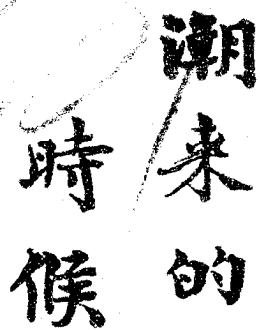 潮来的
時候